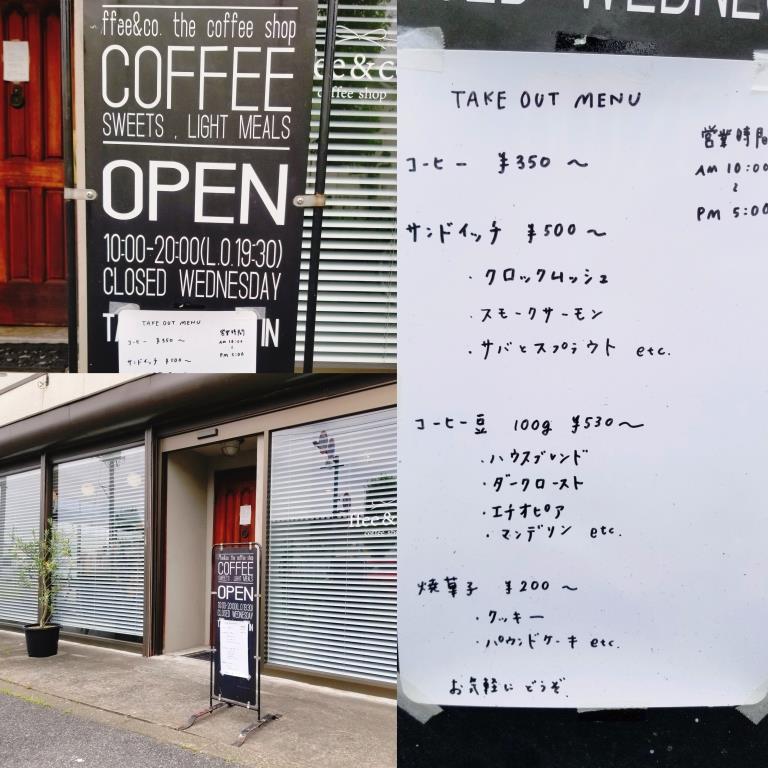 ffee&co. the coffee shop
COFFEE
SWEETS , LIGHT MEALS
OPEN
10:00-20:00(L.O.19:30)
CLOSED WEDNESDAY
TA IN
TAKE OUT MENU
コーヒー ¥350 〜
サンドイッチ ¥500 〜
営業時間
AM 10:00
〜
PM 5:00
ee&c
coffee shop
CLOSED WEDNES
TAKE OUT MENU
営業時間
AM 10:00
〜
PM 5:00
コーヒー ¥350 〜
サンドイッチ ¥500 〜
・クロックムッシュ
・スモークサーモン
・サバとスプラウト etc.
コーヒー豆 100g ¥530〜
・ハウスブレンド
・ダークロースト
・エチオピア
・マンデリン etc.
焼菓子 ¥200 〜
・クッキー
・パウンドケーキ etc.
お気軽にどうぞ.
ffee&
coffee sho
ffee&co. the coffee shop
COFFEE
SWEETS , LIGHT MEALS
OPEN
10:00-20:00(L.O.19:30)
CLOSED WEDNESDAY
TA IN